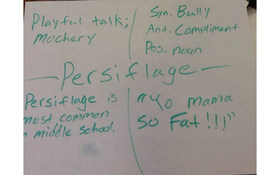 Playful talk;
Mockery
Syn. Bully
Ant. Compliment
Pos. noun
Persiflage
Persiflage is
most common
in middle school.
"Yo mama
so Fat!!!"